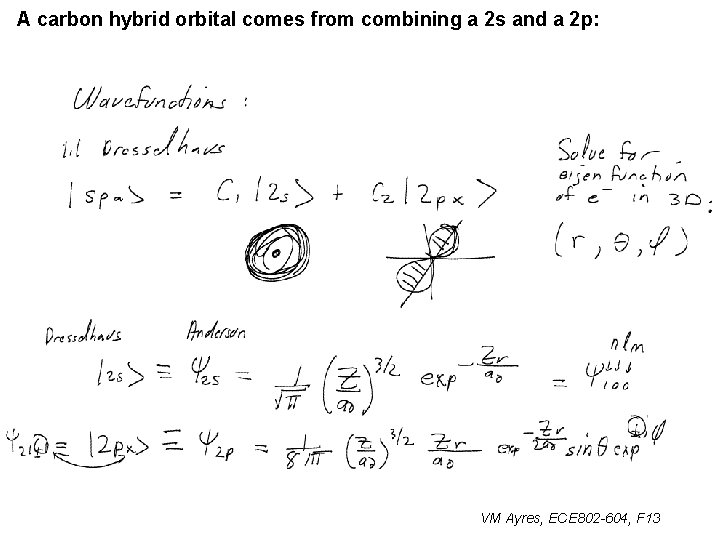 A carbon hybrid orbital comes from combining a 2s and a 2p:
Wavefunctions :
1.1 Dresselhaus
|spa> = C₁ |2s> + C₂ |2px>
Solve for
eigen function
of e⁻ in 3D:
(r, θ, φ)
Dresselhaus Anderson
nlm
|2s> ≡ Ψ2s = 1/√π (Z/a₀)^3/2 exp^-Zr/a₀ = Ψ100
Ψ21① = |2px> ≡ Ψ2p = 1/8√π (Z/a₀)^3/2 Zr/a₀ exp^-Zr/2a₀ sinθ exp^ⓘφ
VM Ayres, ECE802-604, F13